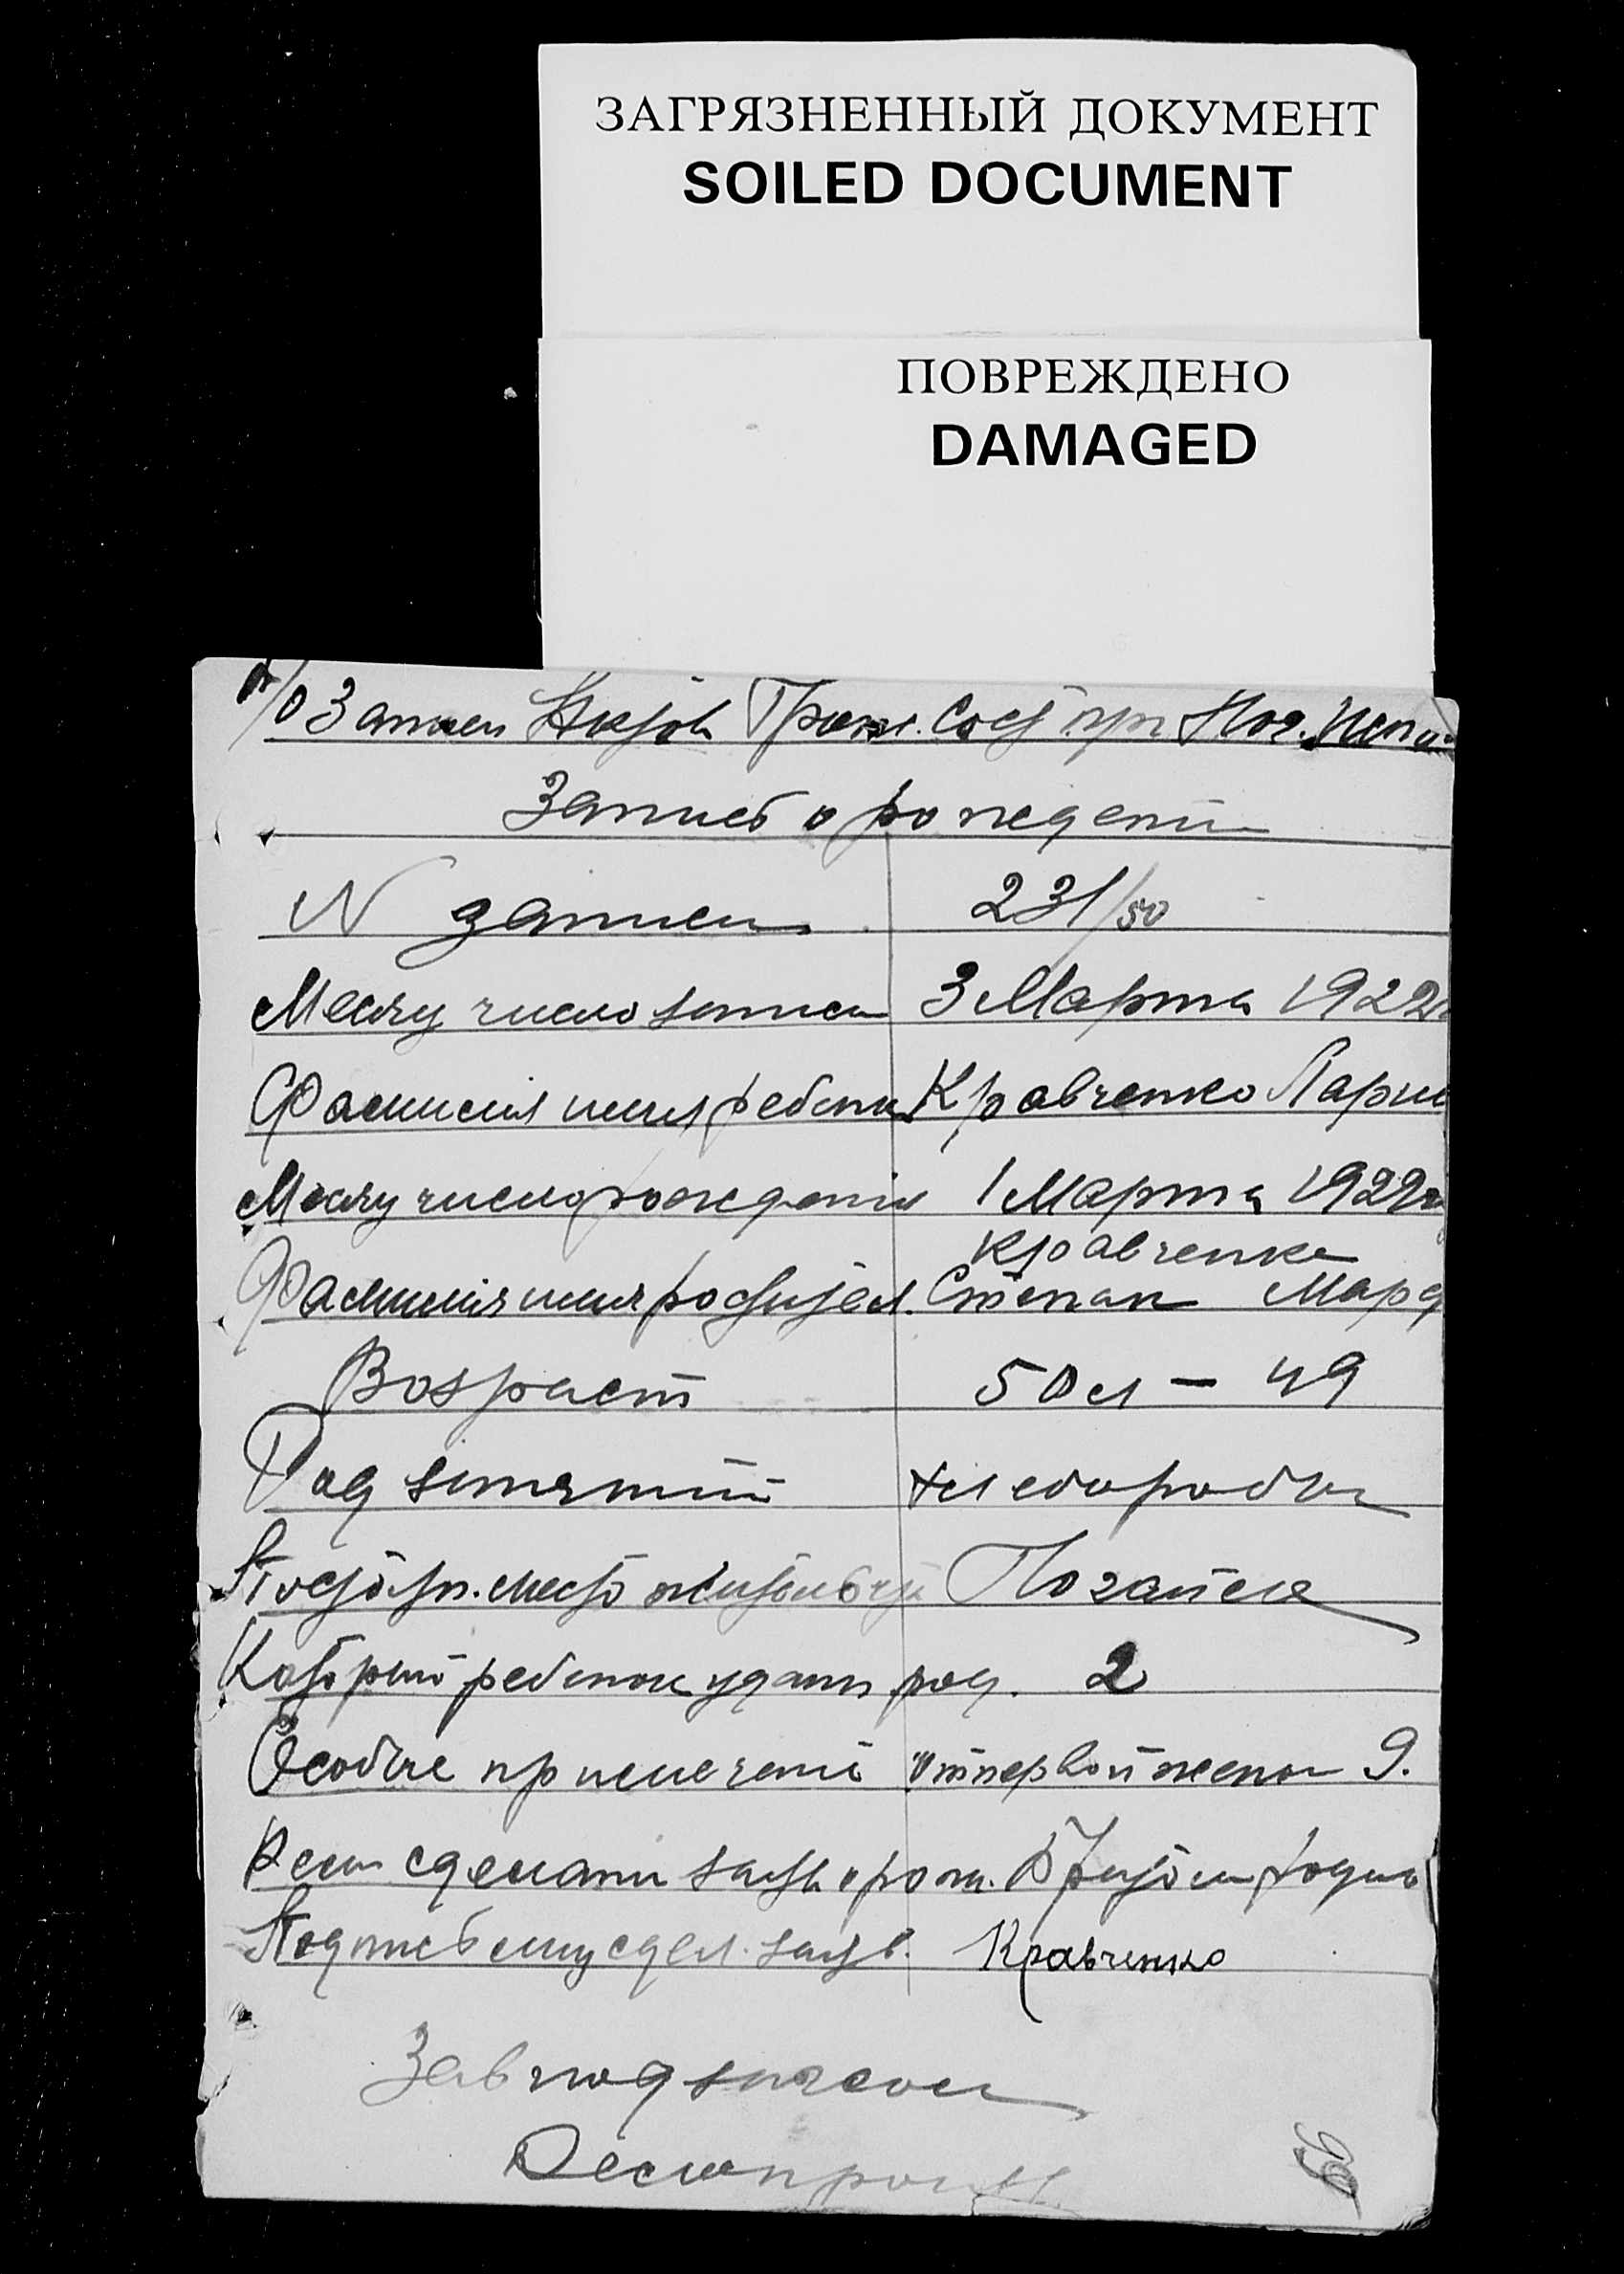 ЗАГРЯЗНЕННЫЙ ДОКУМЕНТ
SOILED DOCUMENT
ПОВРЕЖДЕНО
DAMAGED
п/о Записи Актов Граж. Сост при Ног.
Запись о рождении
N записи 231/50
Месяц число записи 3 Марта 1922г
Фамилия имя ребенк Кравченко Лари
Месяц число рождения 1 Марта 1922г
Кравченко
Фамилия имя родител. Степан Мар
Возраст 50 л – 49
Род занятий хлебороб
Постоян. место жительст Ногайск
Который ребенок у дан. род. 2
Особые примечани от первой жены 9.
Кем сделано заяв. о рож.
Подпись лиц сдел. заяв. Кравченко
Зав подзагсом